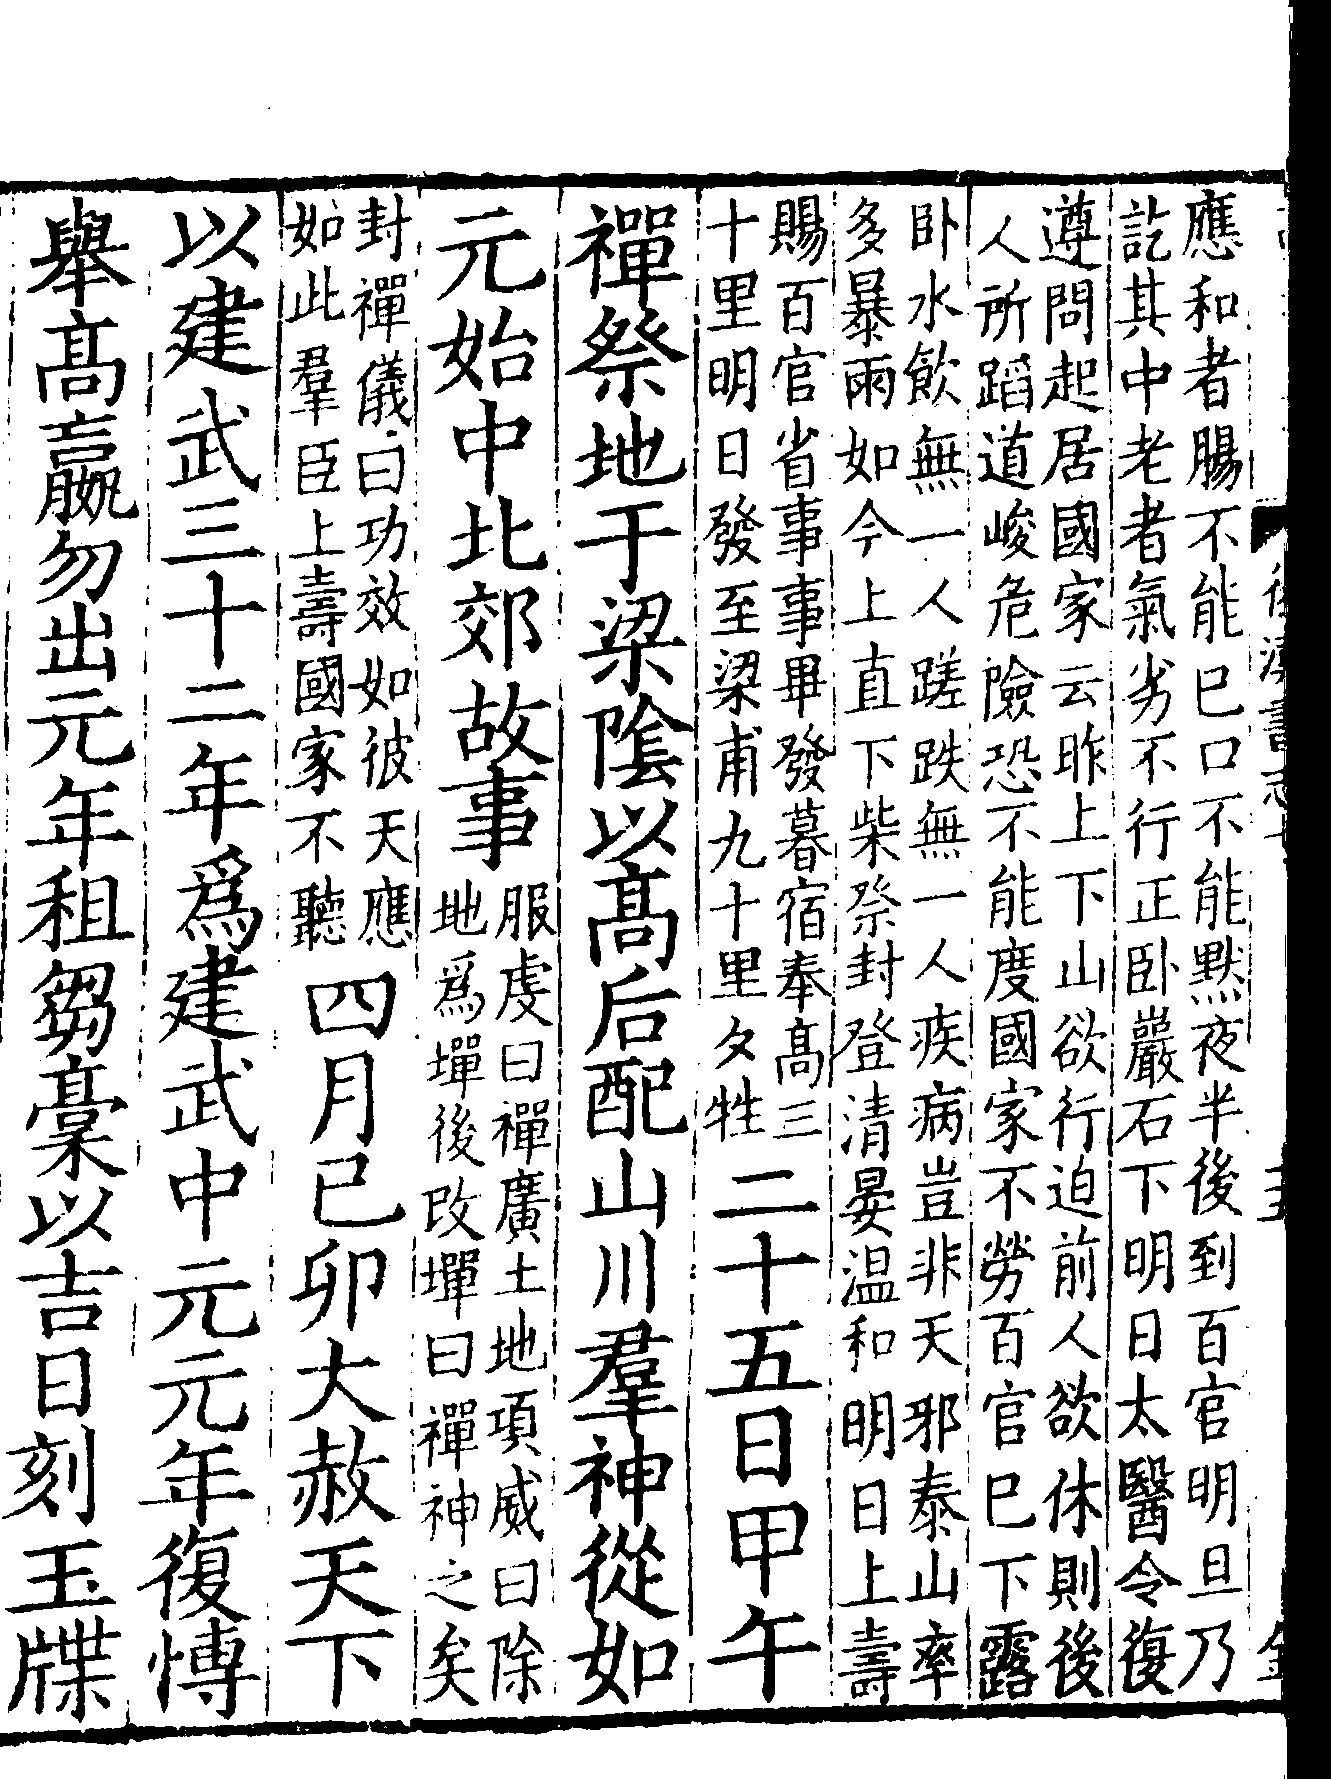 應和者腸不能已口不能默夜半後到百官明旦乃
訖其中老者氣劣不行正臥巖石下明日太醫令復
遵問起居國家云昨上下山欲行迫前人欲休則後
人所蹈道峻危險恐不能度國家不勞百官已下露
臥水飲無一人蹉跌無一人疾病豈非天邪泰山率
多暴雨如今上直下柴祭封登清晏温和明日上壽
賜百官省事事畢發暮宿奉高三
十里明日發至梁甫九十里夕牲
二十五日甲午
禪祭地于梁陰以高后配山川羣神從如
元始中北郊故事
服虔曰禪廣土地項威曰除
地爲墠後改墠曰禪神之矣
封禪儀曰功效如彼天應
如此羣臣上壽國家不聽
四月己卯大赦天下
以建武三十二年爲建武中元元年復博
舉高嬴勿出元年租芻稾以吉日刻玉牒
後漢書志七